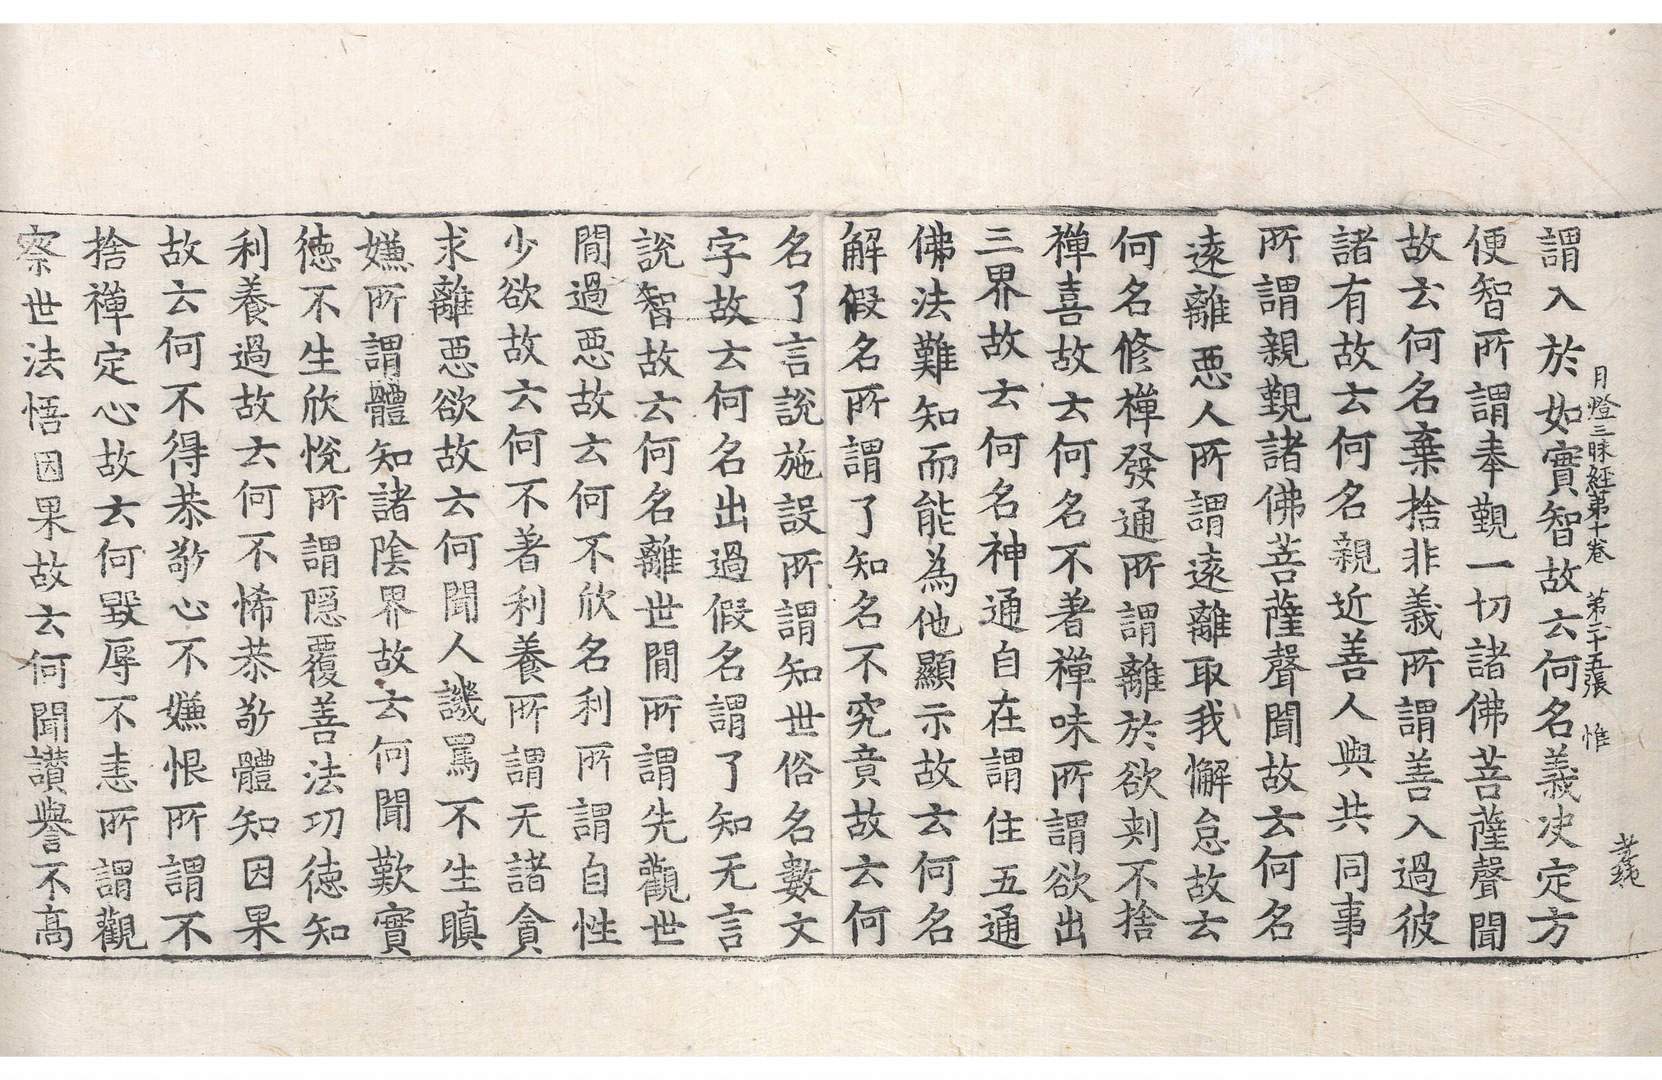 月燈三昧經第十卷 第二十五張 惟
謂入於如實智故云何名義决定方
便智所謂奉覲一切諸佛菩薩聲聞
故云何名棄捨非義所謂善入過彼
諸有故云何名親近善人與共同事
所謂親覲諸佛菩薩聲聞故云何名
遠離惡人所謂遠離取我懈怠故去
何名修禅發通所謂離於欲刾不捨
禅喜故云何名不著禅味所謂欲出
三界故云何名神通自在謂住五通
佛法難知而能為他顯示故云何名
解假名所謂了知名不究竟故云何
名了言說施設所謂知世俗名數文
字故云何名出過假名謂了知无言
說智故云何名離世閒所謂先觀世
閒過惡故云何不欣名利所謂自性
少欲故云何不著利養所謂无諸貪
求離惡欲故云何聞人譏罵不生瞋
嫌所謂體知諸陰界故云何聞歎實
徳不生欣恱所謂隠覆善法功徳知
利養過故云何不悕恭敬體知因果
故云何不得恭敬心不嫌恨所謂不
捨禅定心故云何毀辱不恚所謂觀
察世法悟因果故云何聞讃譽不高